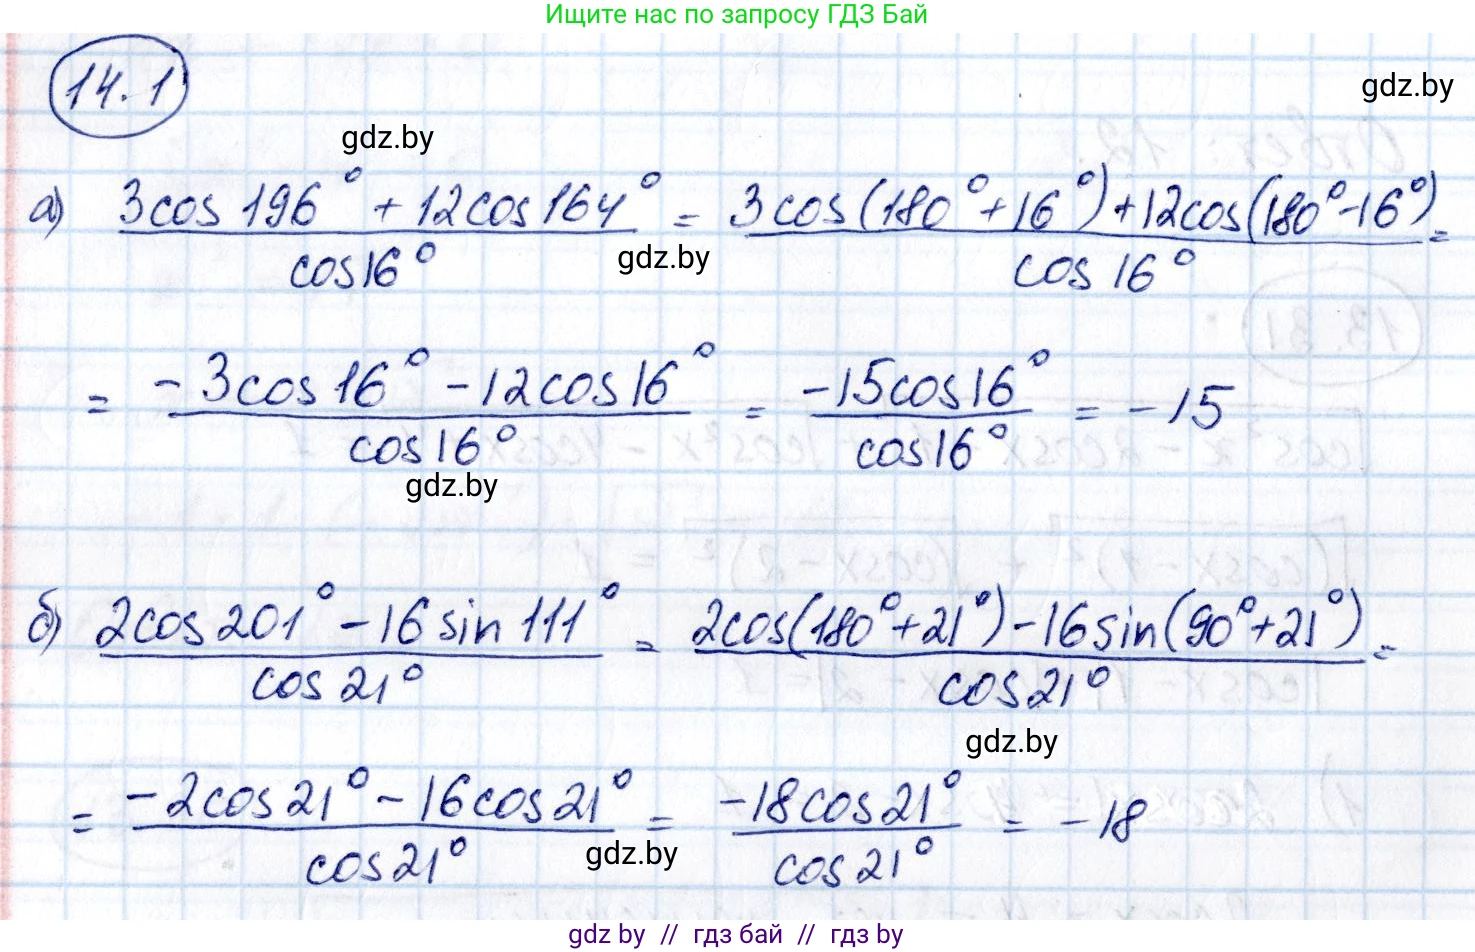 Ищите нас по запросу ГДЗ Бай
14.1
gdz.by
gdz.by
а) (3cos 196° + 12cos 164°) / cos 16° = (3cos(180° + 16°) + 12cos(180° - 16°)) / cos 16° =
gdz.by
= (-3cos 16° - 12cos 16°) / cos 16° = (-15cos 16°) / cos 16° = -15
gdz.by
б) (2cos 201° - 16 sin 111°) / cos 21° = (2cos(180° + 21°) - 16 sin(90° + 21°)) / cos 21° =
gdz.by
= (-2cos 21° - 16cos 21°) / cos 21° = (-18cos 21°) / cos 21° = -18
gdz.by
gdz by // гдз бай // гдз by